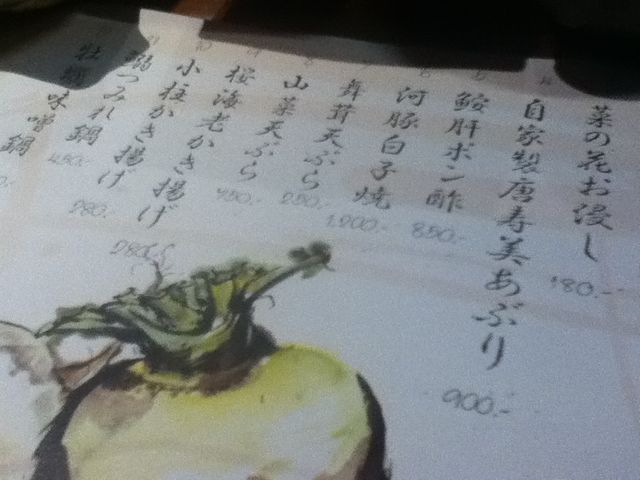 菜の花お浸し
180.-
自家製唐寿美あぶり
900.-
鮟肝ポン酢
850.-
河豚白子焼
1200.-
舞茸天ぷら
250.-
山菜天ぷら
桜海老かき揚げ
280.-
小柱かき揚げ
280.-
鰯つみれ鍋
450.-
牡蠣味噌鍋